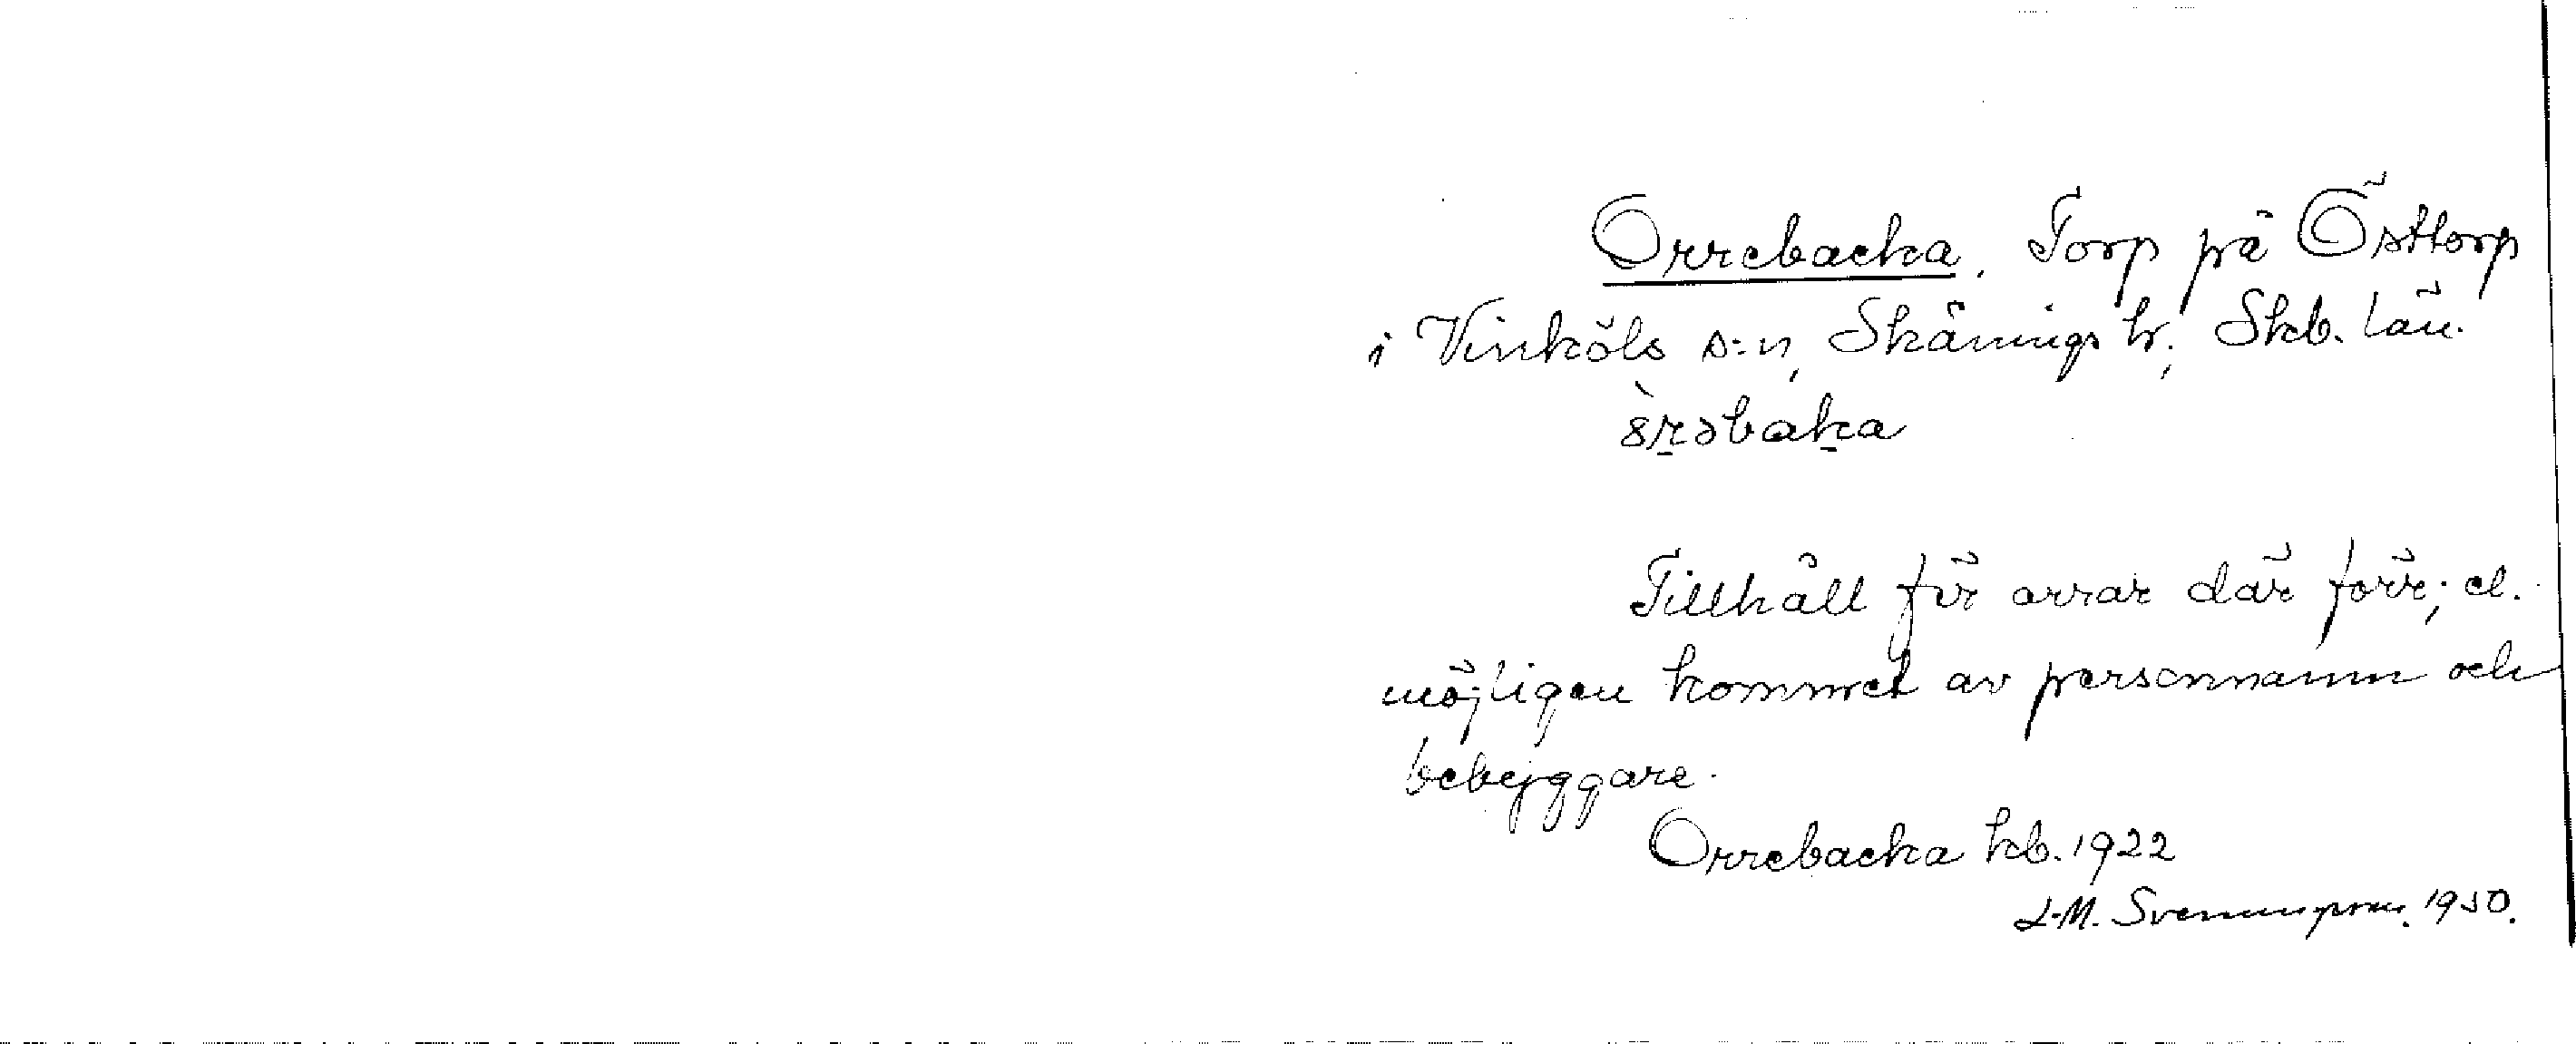 Orrebacka, Torp på Östtorp
i Vinköls s:n, Skånings hr., Skb. län.
Tillhåll för orrar där förr; el.
möjligen kommet av personnamn och
bebyggare.
Orrebacka kb. 1922
1950.